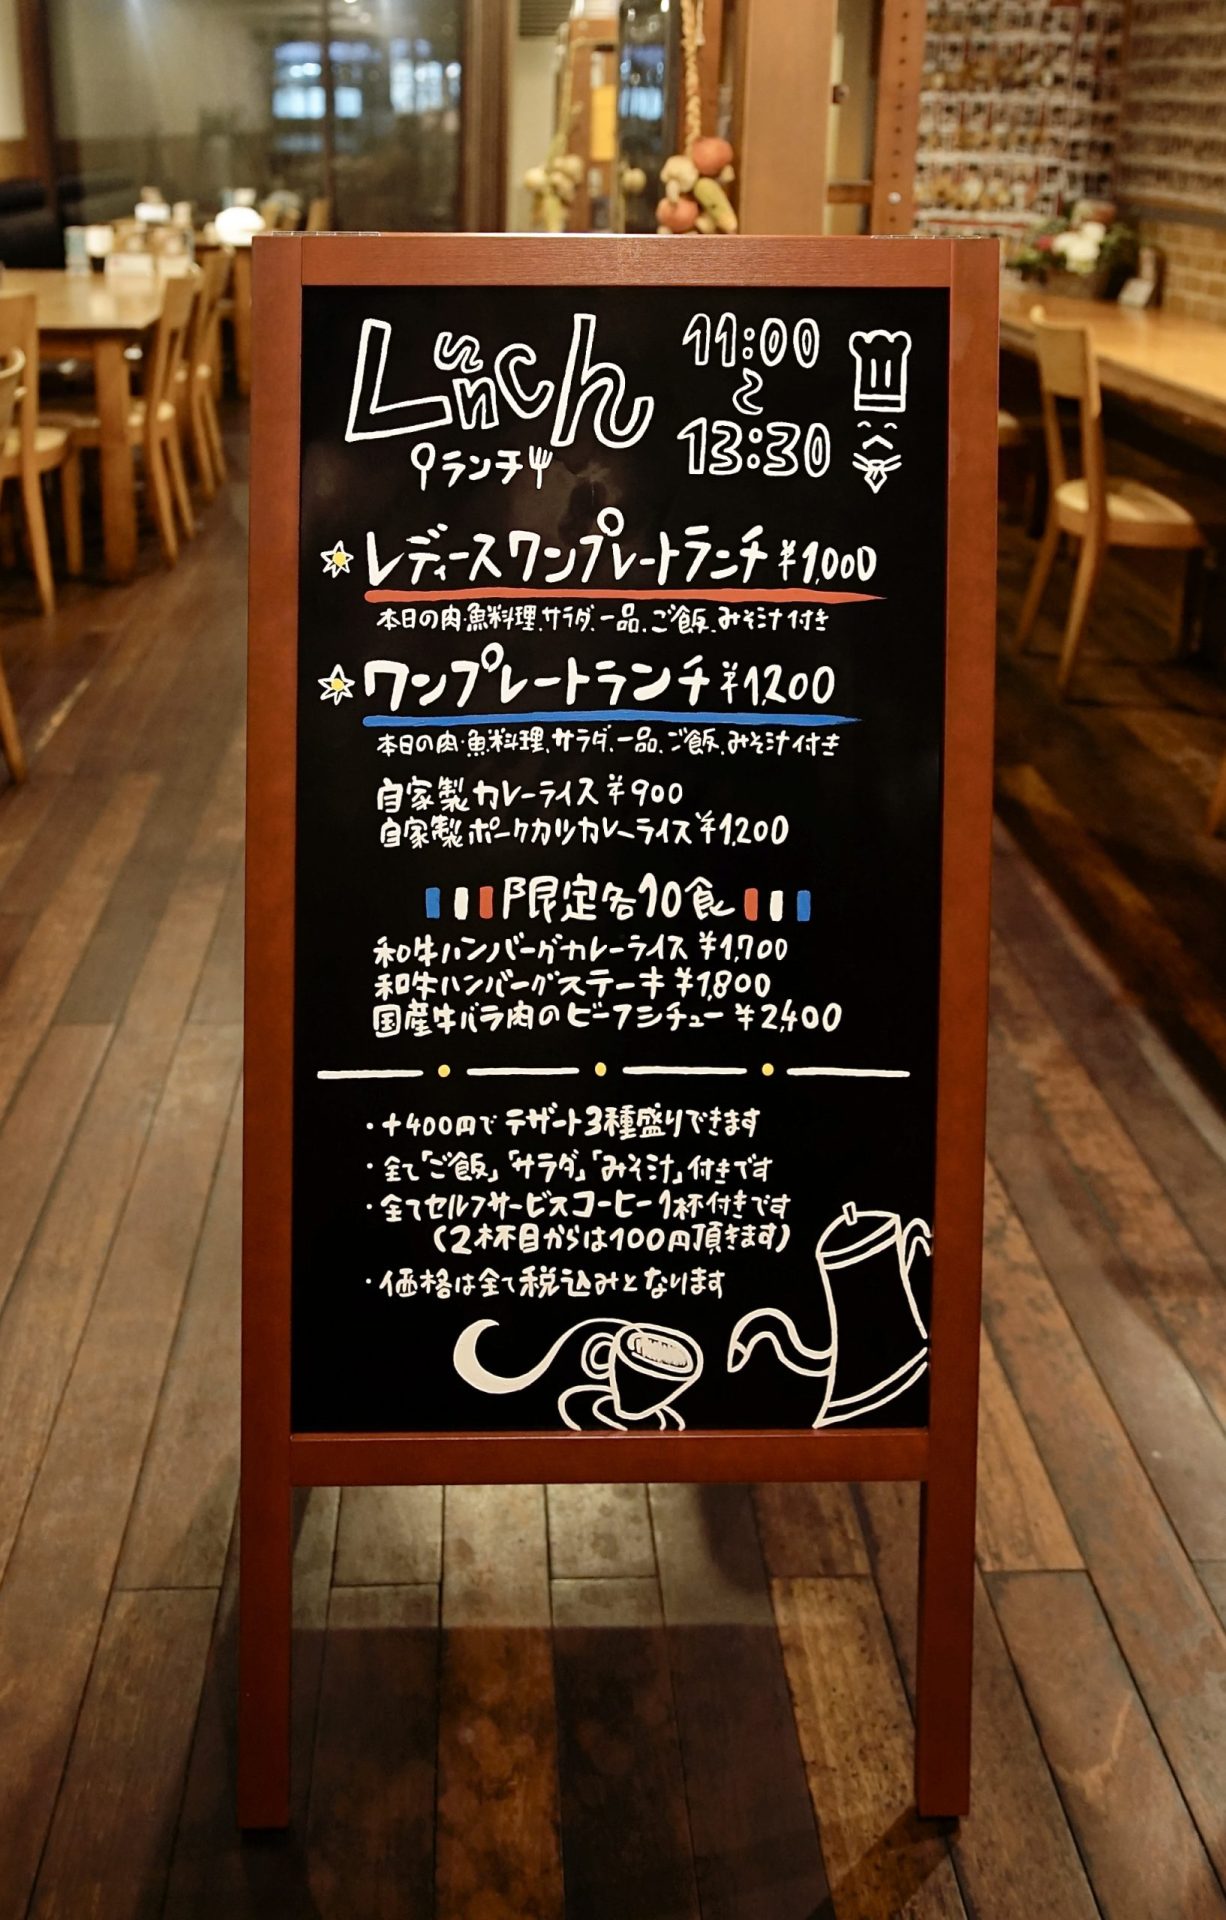 Lunch
ランチ
11:00
〜
13:30
レディースワンプレートランチ ¥1,000
本日の肉・魚料理、サラダ、一品、ご飯、みそ汁付き
ワンプレートランチ ¥1,200
本日の肉・魚料理、サラダ、一品、ご飯、みそ汁付き
自家製カレーライス ¥900
自家製ポークカツカレーライス ¥1,200
限定各10食
和牛ハンバーグカレーライス ¥1,700
和牛ハンバーグステーキ ¥1,800
国産牛バラ肉のビーフシチュー ¥2,400
・+400円でデザート3種盛りできます
・全て「ご飯」「サラダ」「みそ汁」付きです
・全てセルフサービスコーヒー1杯付きです
(2杯目からは100円頂きます)
・価格は全て税込みとなります